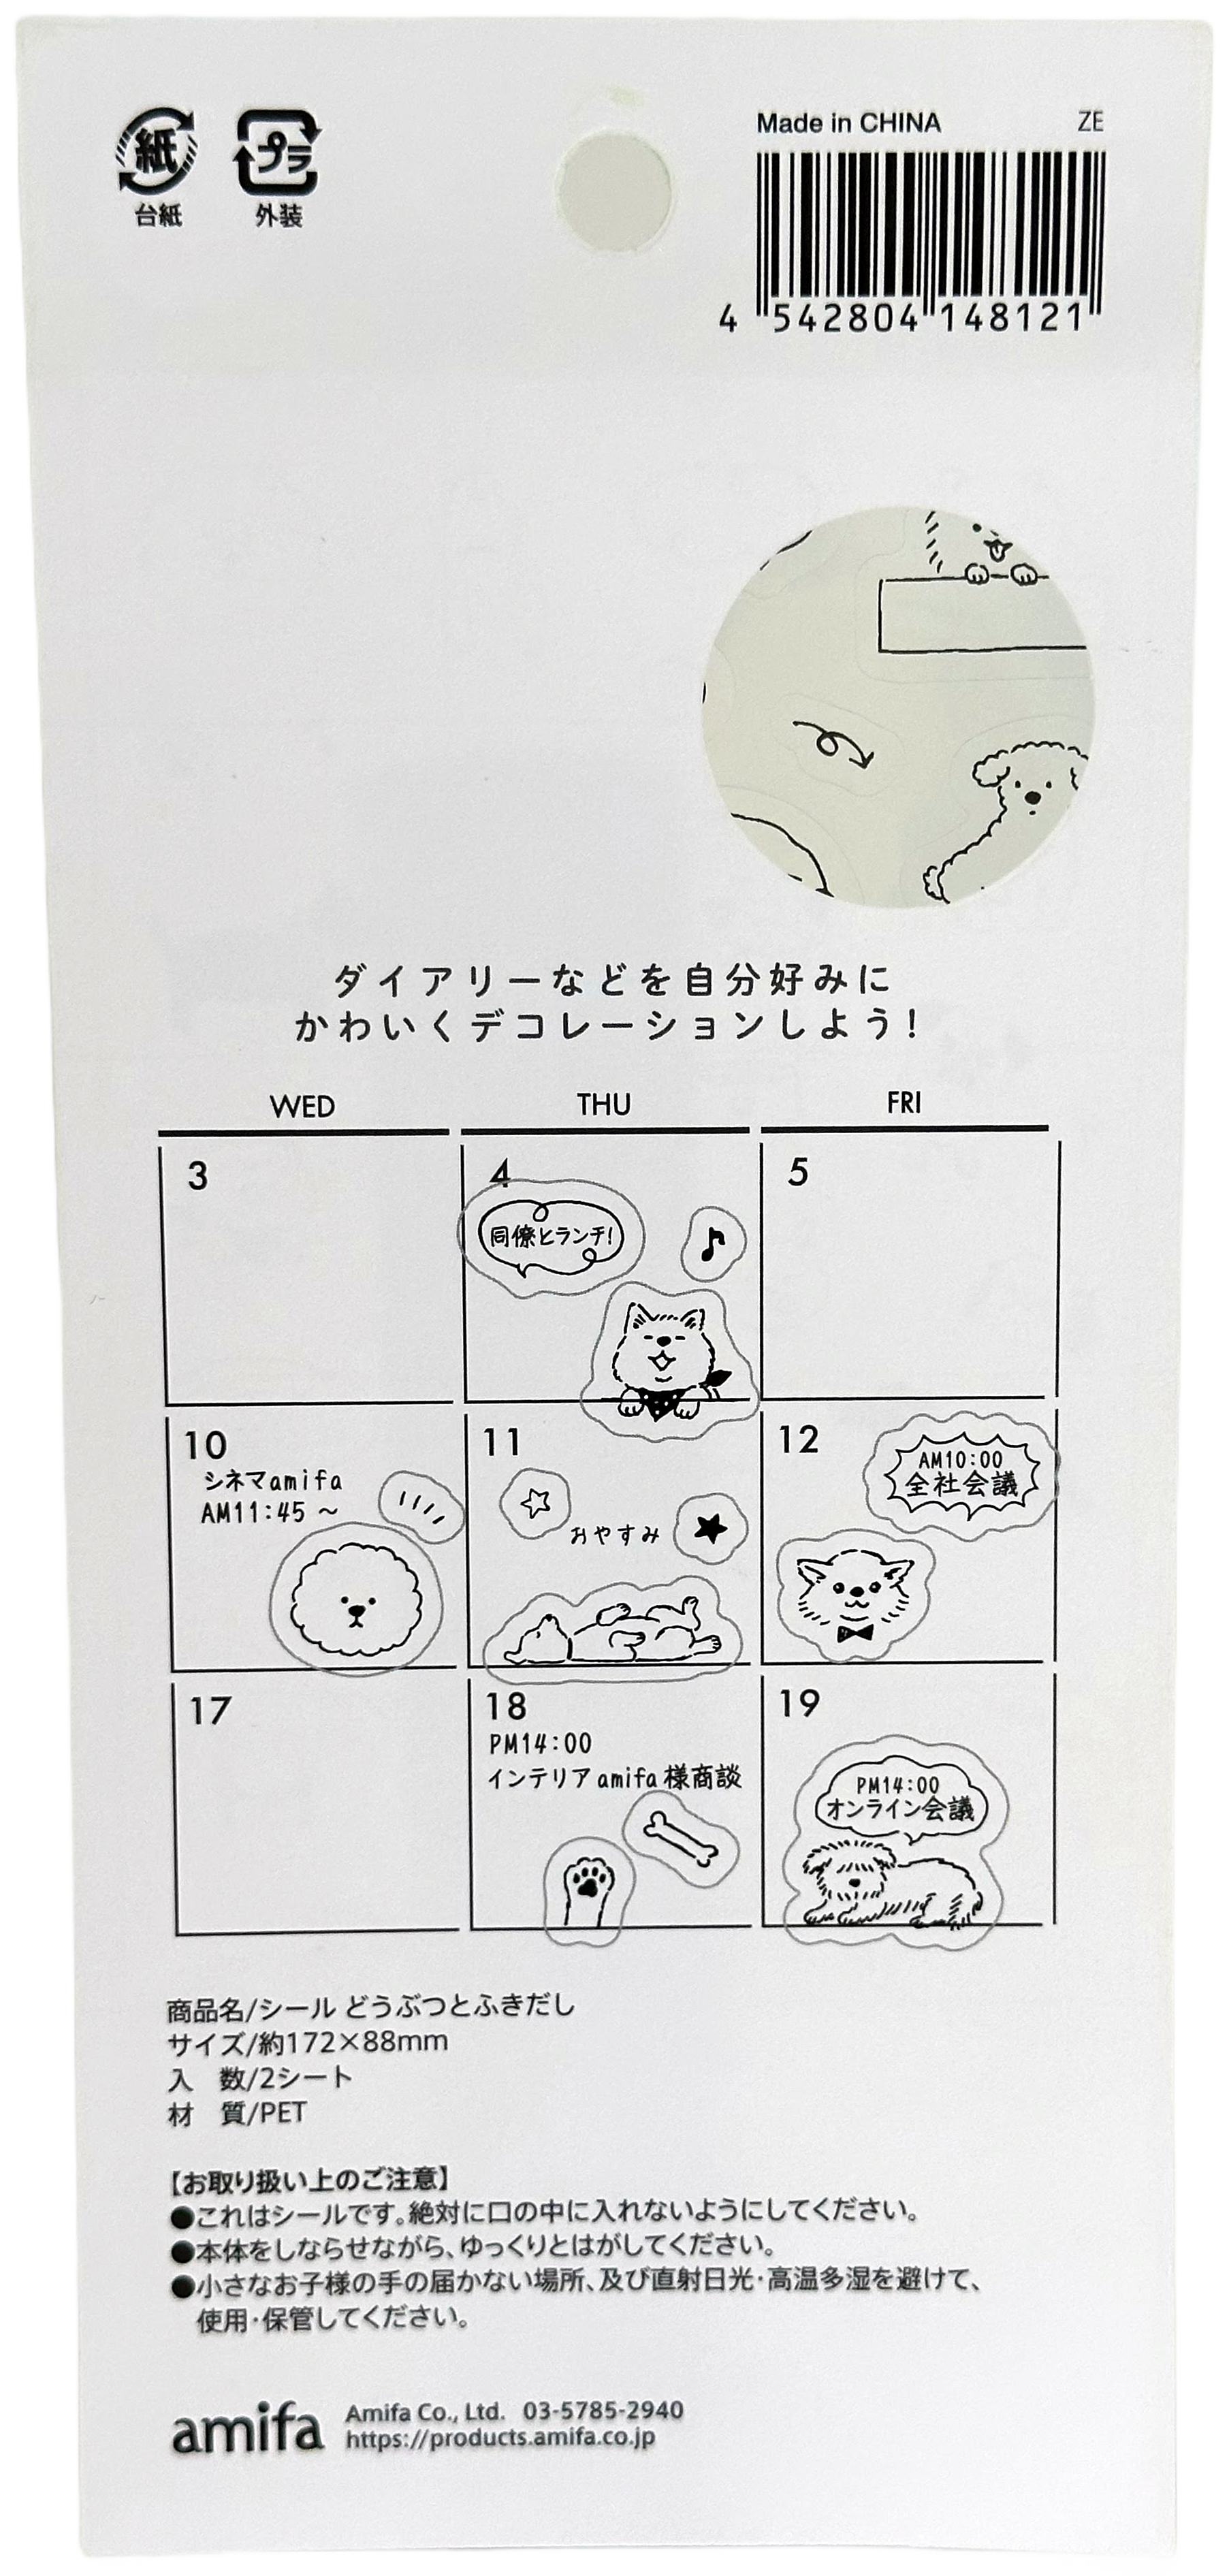 紙
台紙
プラ
外装
Made in CHINA ZE
4 542804 148121
ダイアリーなどを自分好みに
かわいくデコレーションしよう!
WED THU FRI
3 4 5
同僚とランチ!
10 11 12
シネマamifa
AM11:45 ~
おやすみ
AM10:00
全社会議
17 18 19
PM14:00
インテリアamifa様商談
PM14:00
オンライン会議
商品名/シール どうぶつとふきだし
サイズ/約172×88mm
入 数/2シート
材 質/PET
【お取り扱い上のご注意】
●これはシールです。絶対に口の中に入れないようにしてください。
●本体をしならせながら、ゆっくりとはがしてください。
●小さなお子様の手の届かない場所、及び直射日光・高温多湿を避けて、
使用・保管してください。
amifa
Amifa Co., Ltd. 03-5785-2940
https://products.amifa.co.jp